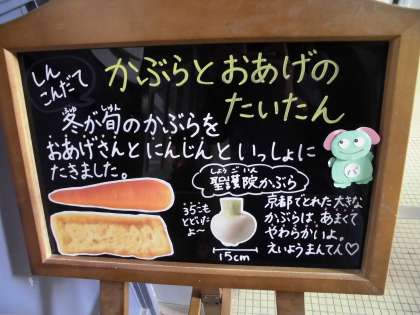 しん
こんだて
かぶらとおあげの
たいたん
冬が旬のかぶらを
おあげさんとにんじんといっしょに
たきました。
聖護院かぶら
京都でとれた大きな
かぶらは、あまくて
やわらかいよ。
えいようまんてん♡
15cm